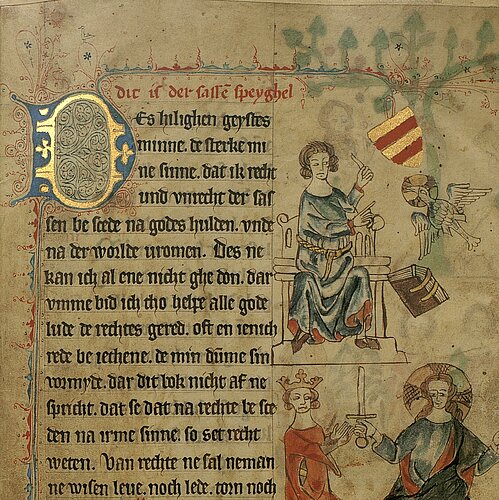 dit is der sassē speyghel
Des hilighen geystes
minne. de sterke mi
ne sinne. dat ik recht
und vnrecht der sas
sen be scede na godes hulden. vnde
na der worlde vromen. Des ne
kan ich al ene nicht ghe don. dar
vmme bid ich tho helpe alle gode
lude de rechtes gered. oft en ienich
rede be ieghene. de min dūme sin
vormyde. dar dit bok nicht af ne
spricht. dat se dat na rechte be sce
den na irme sinne. so set recht
weten. Van rechte ne sal neman
ne wisen leve. noch lede. torn noch